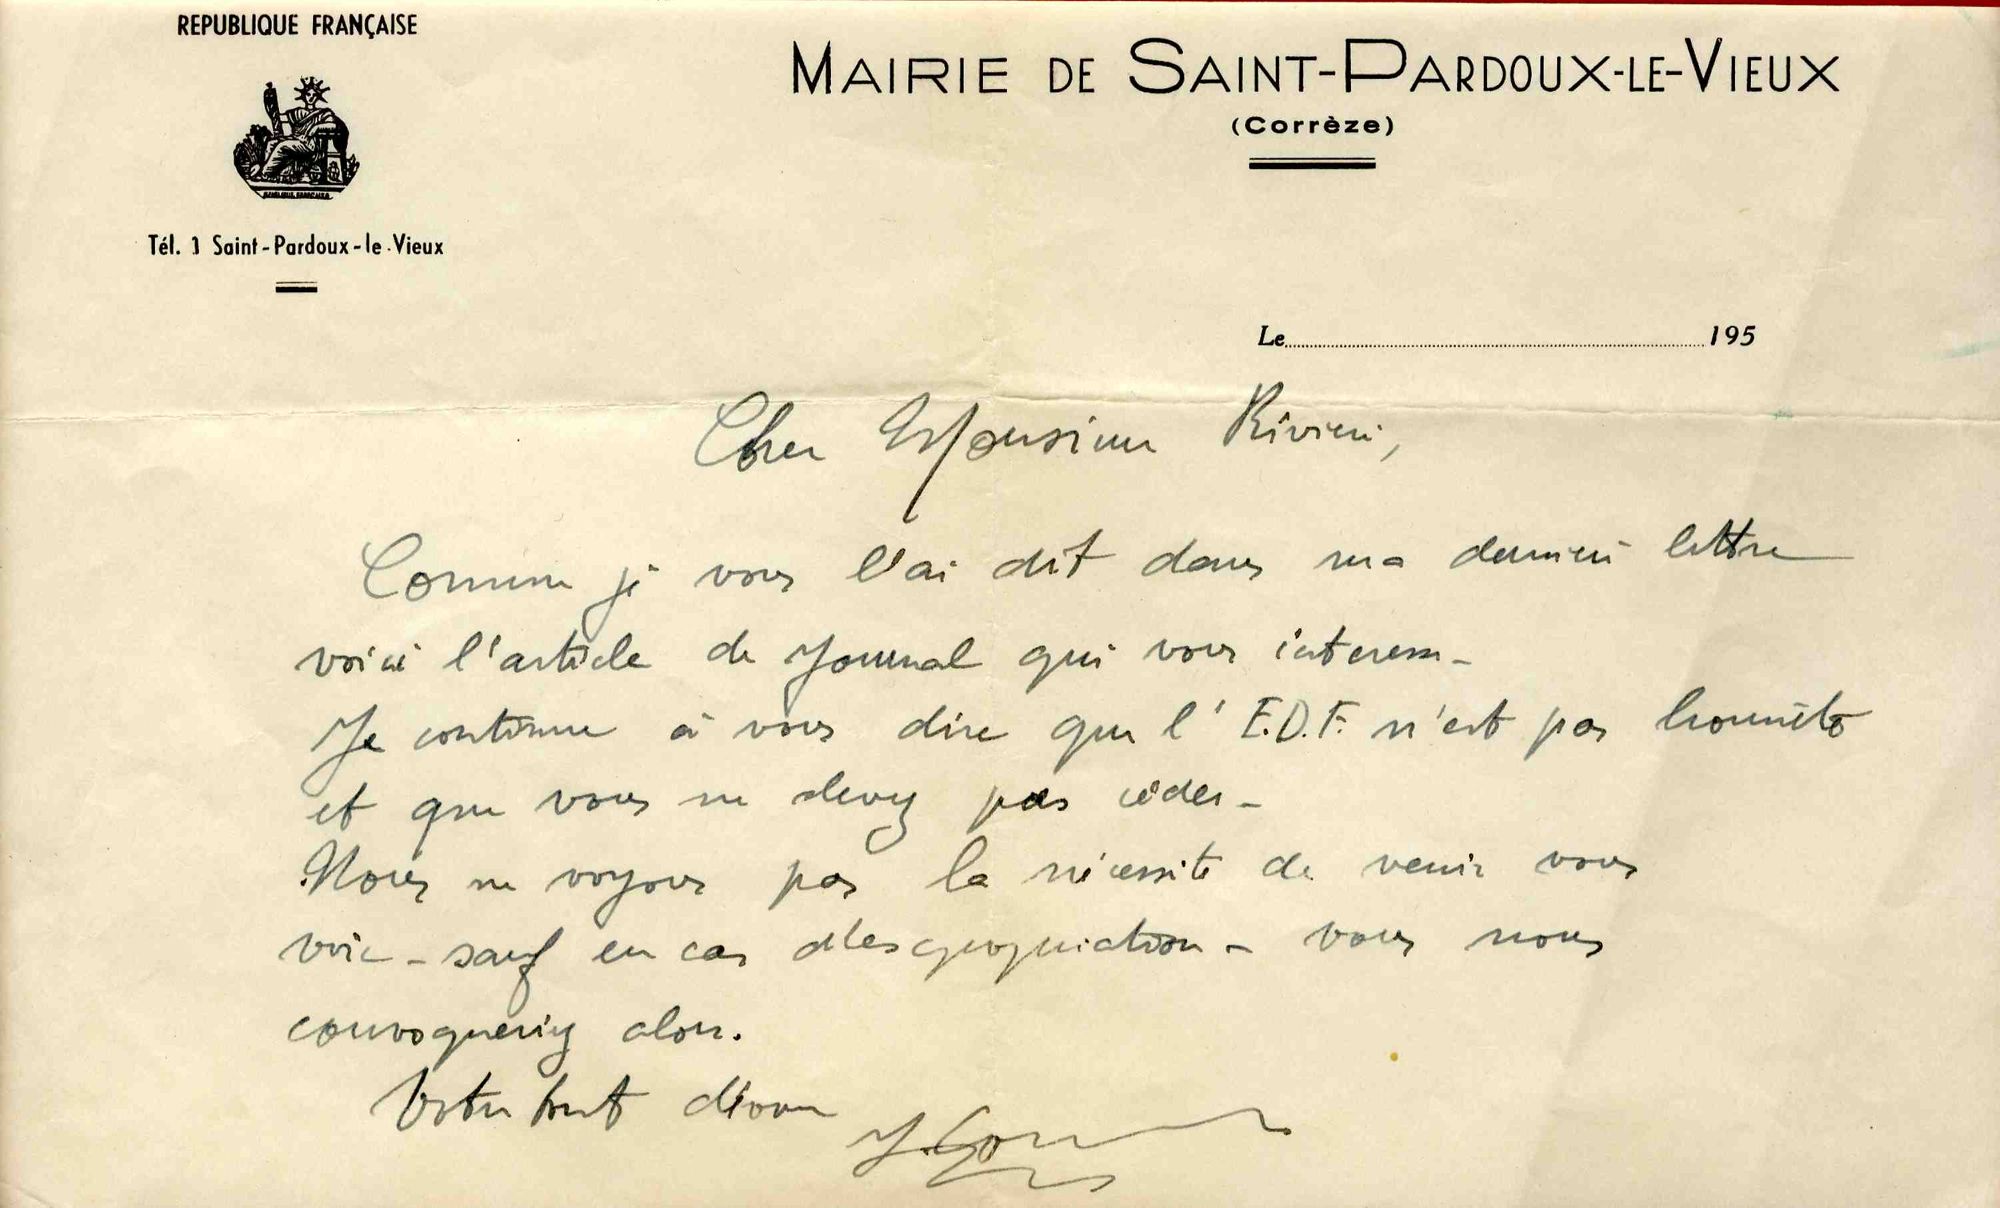 REPUBLIQUE FRANÇAISE
MAIRIE DE SAINT-PARDOUX-LE-VIEUX
(Corrèze)
Tél. 1 Saint-Pardoux-le-Vieux
Le 195
Cher Monsieur Rivière,
Comme je vous l'ai dit dans ma dernière lettre
voici l'article de Journal qui vous interesse -
Je continue à vous dire que l'E.D.F. n'est pas honnête
et que vous ne devez pas céder -
Nous ne voyons pas la nécessité de venir vous
voir - sauf en cas d'expropriation - vous nous
convoqueriez alors.
Votre tout dévoué